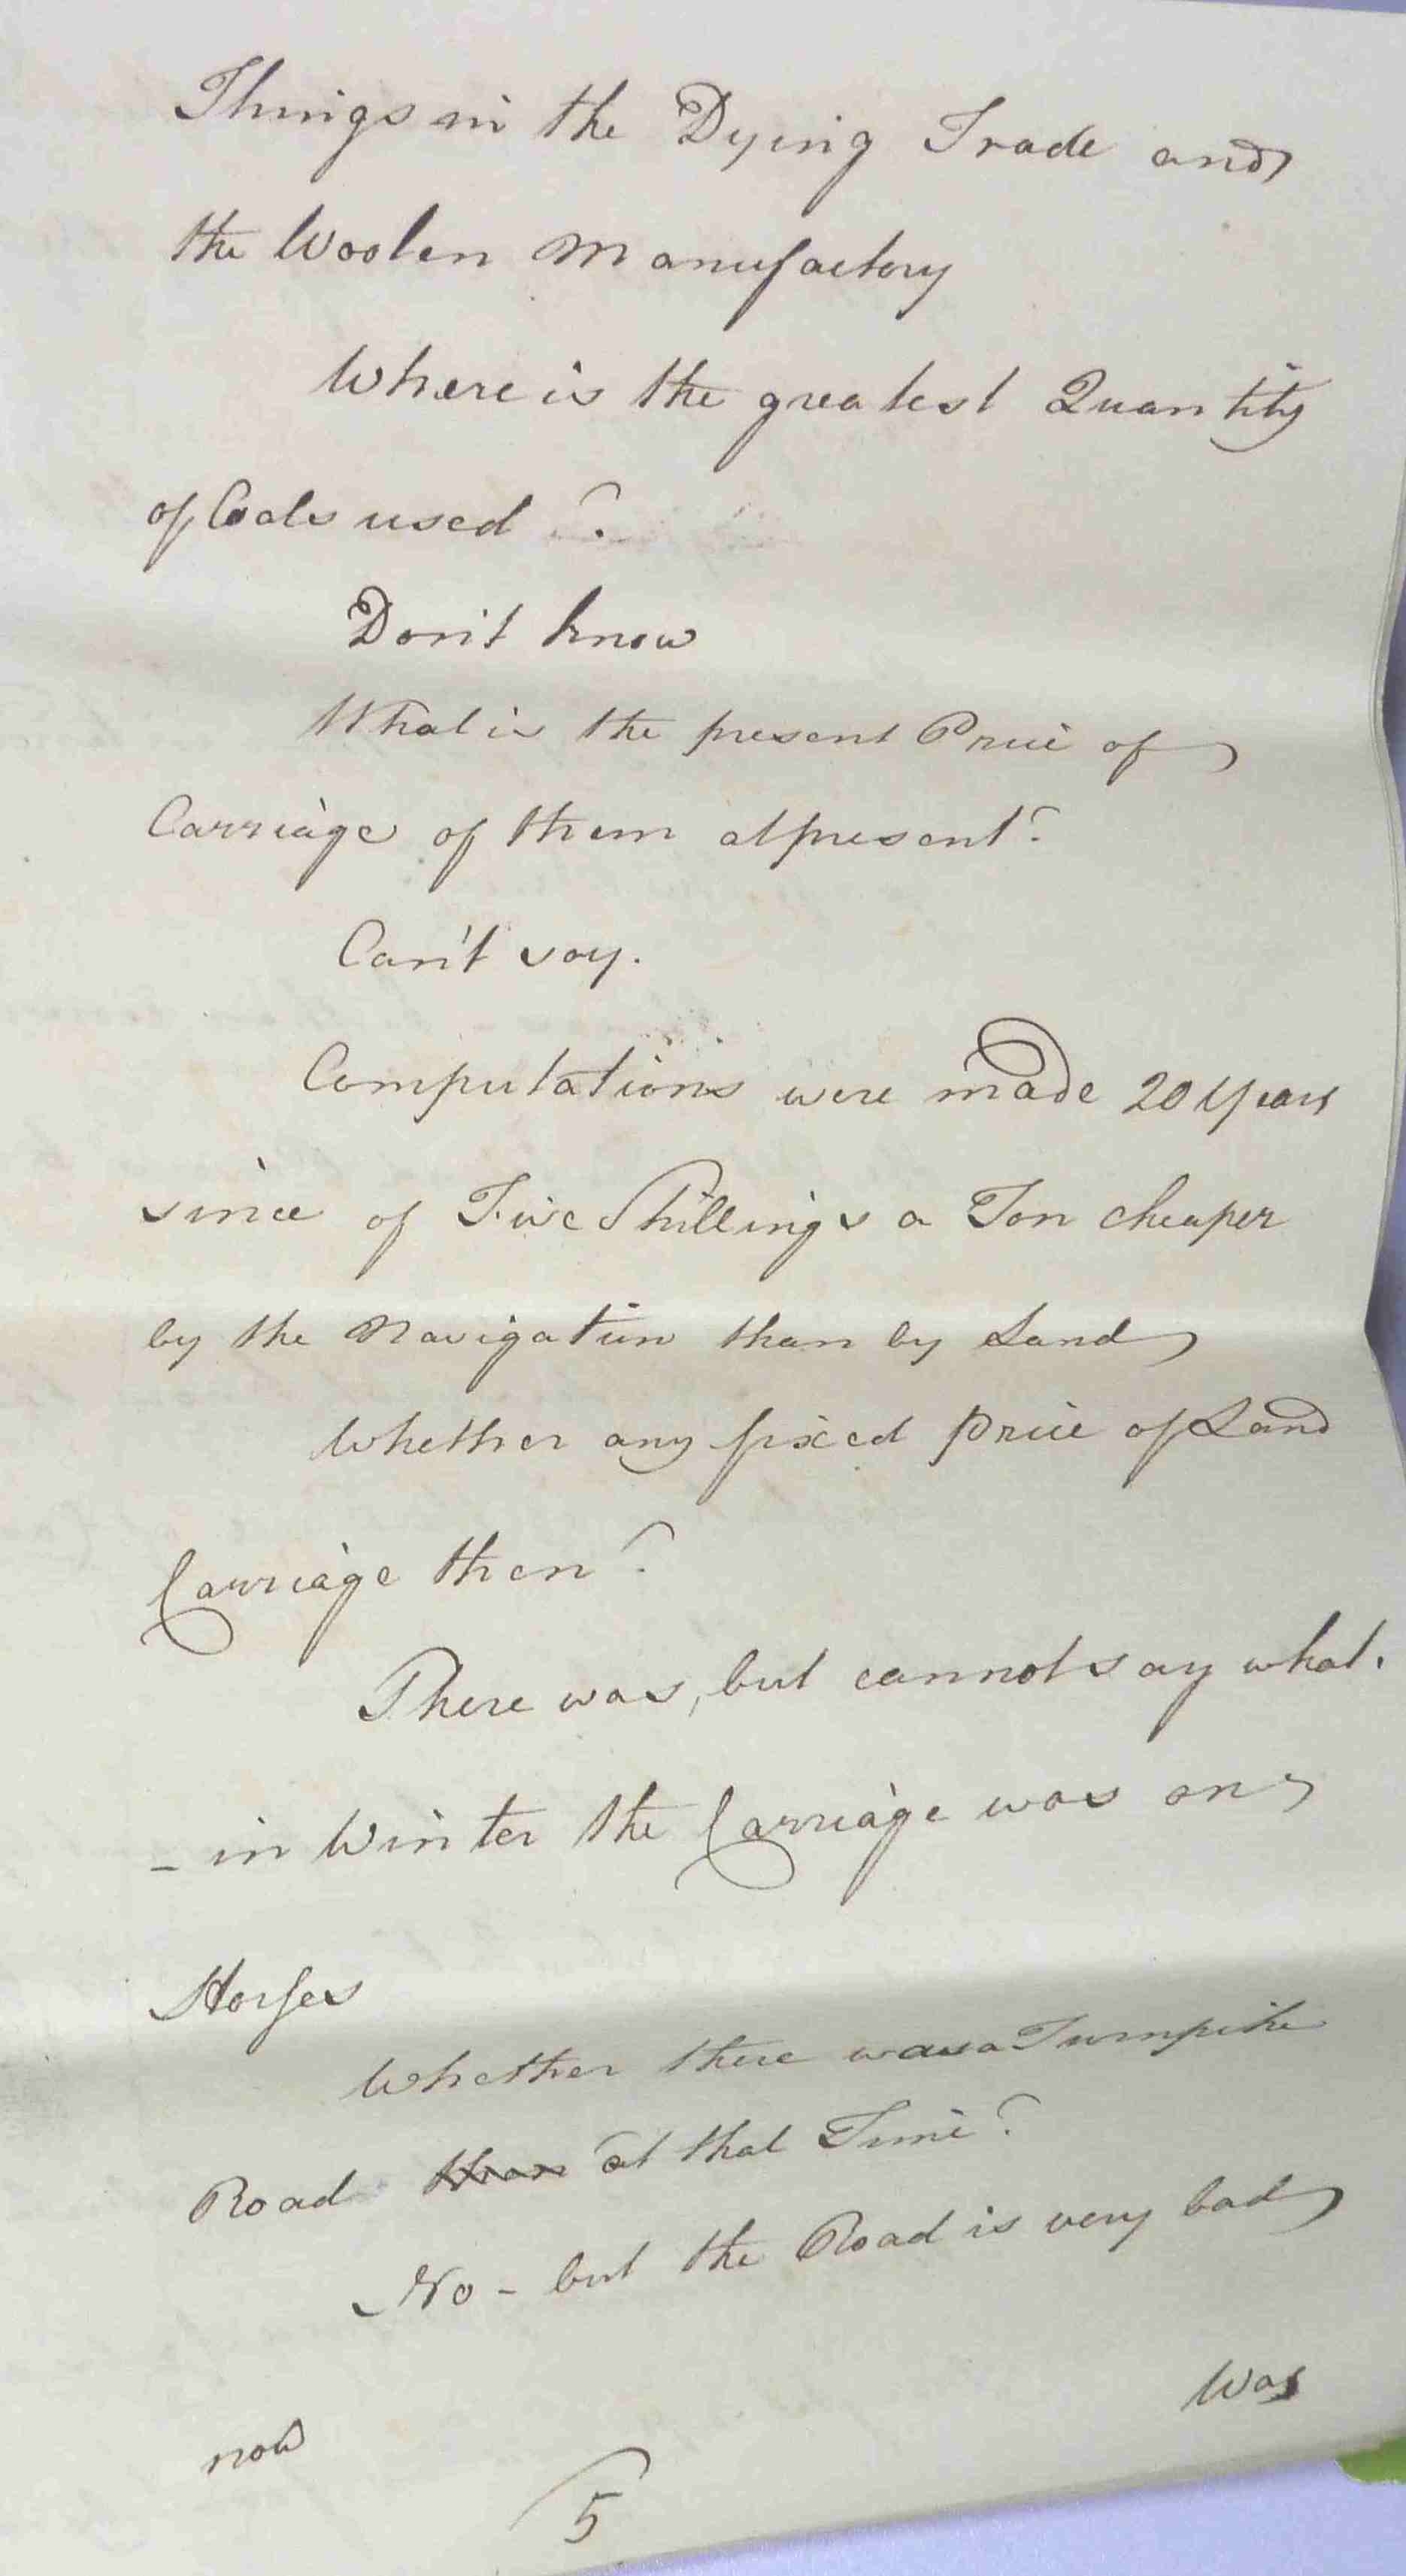 Things in the Dying Trade and
the Woolen Manufactory
Where is the greatest Quantity
of Coals used?
Don't know
What is the present Price of
Carriage of them at present?
Can't say.
Computations were made 20 Years
since of Five Shillings a Ton cheaper
by the Navigation than by Land
Whether any fixed Price of Land
Carriage then?
There was, but cannot say what.
- in Winter the Carriage was on
Horses
Whether there was a Turnpike
Road then at that Time?
No - but the Road is very bad
now
Was
5